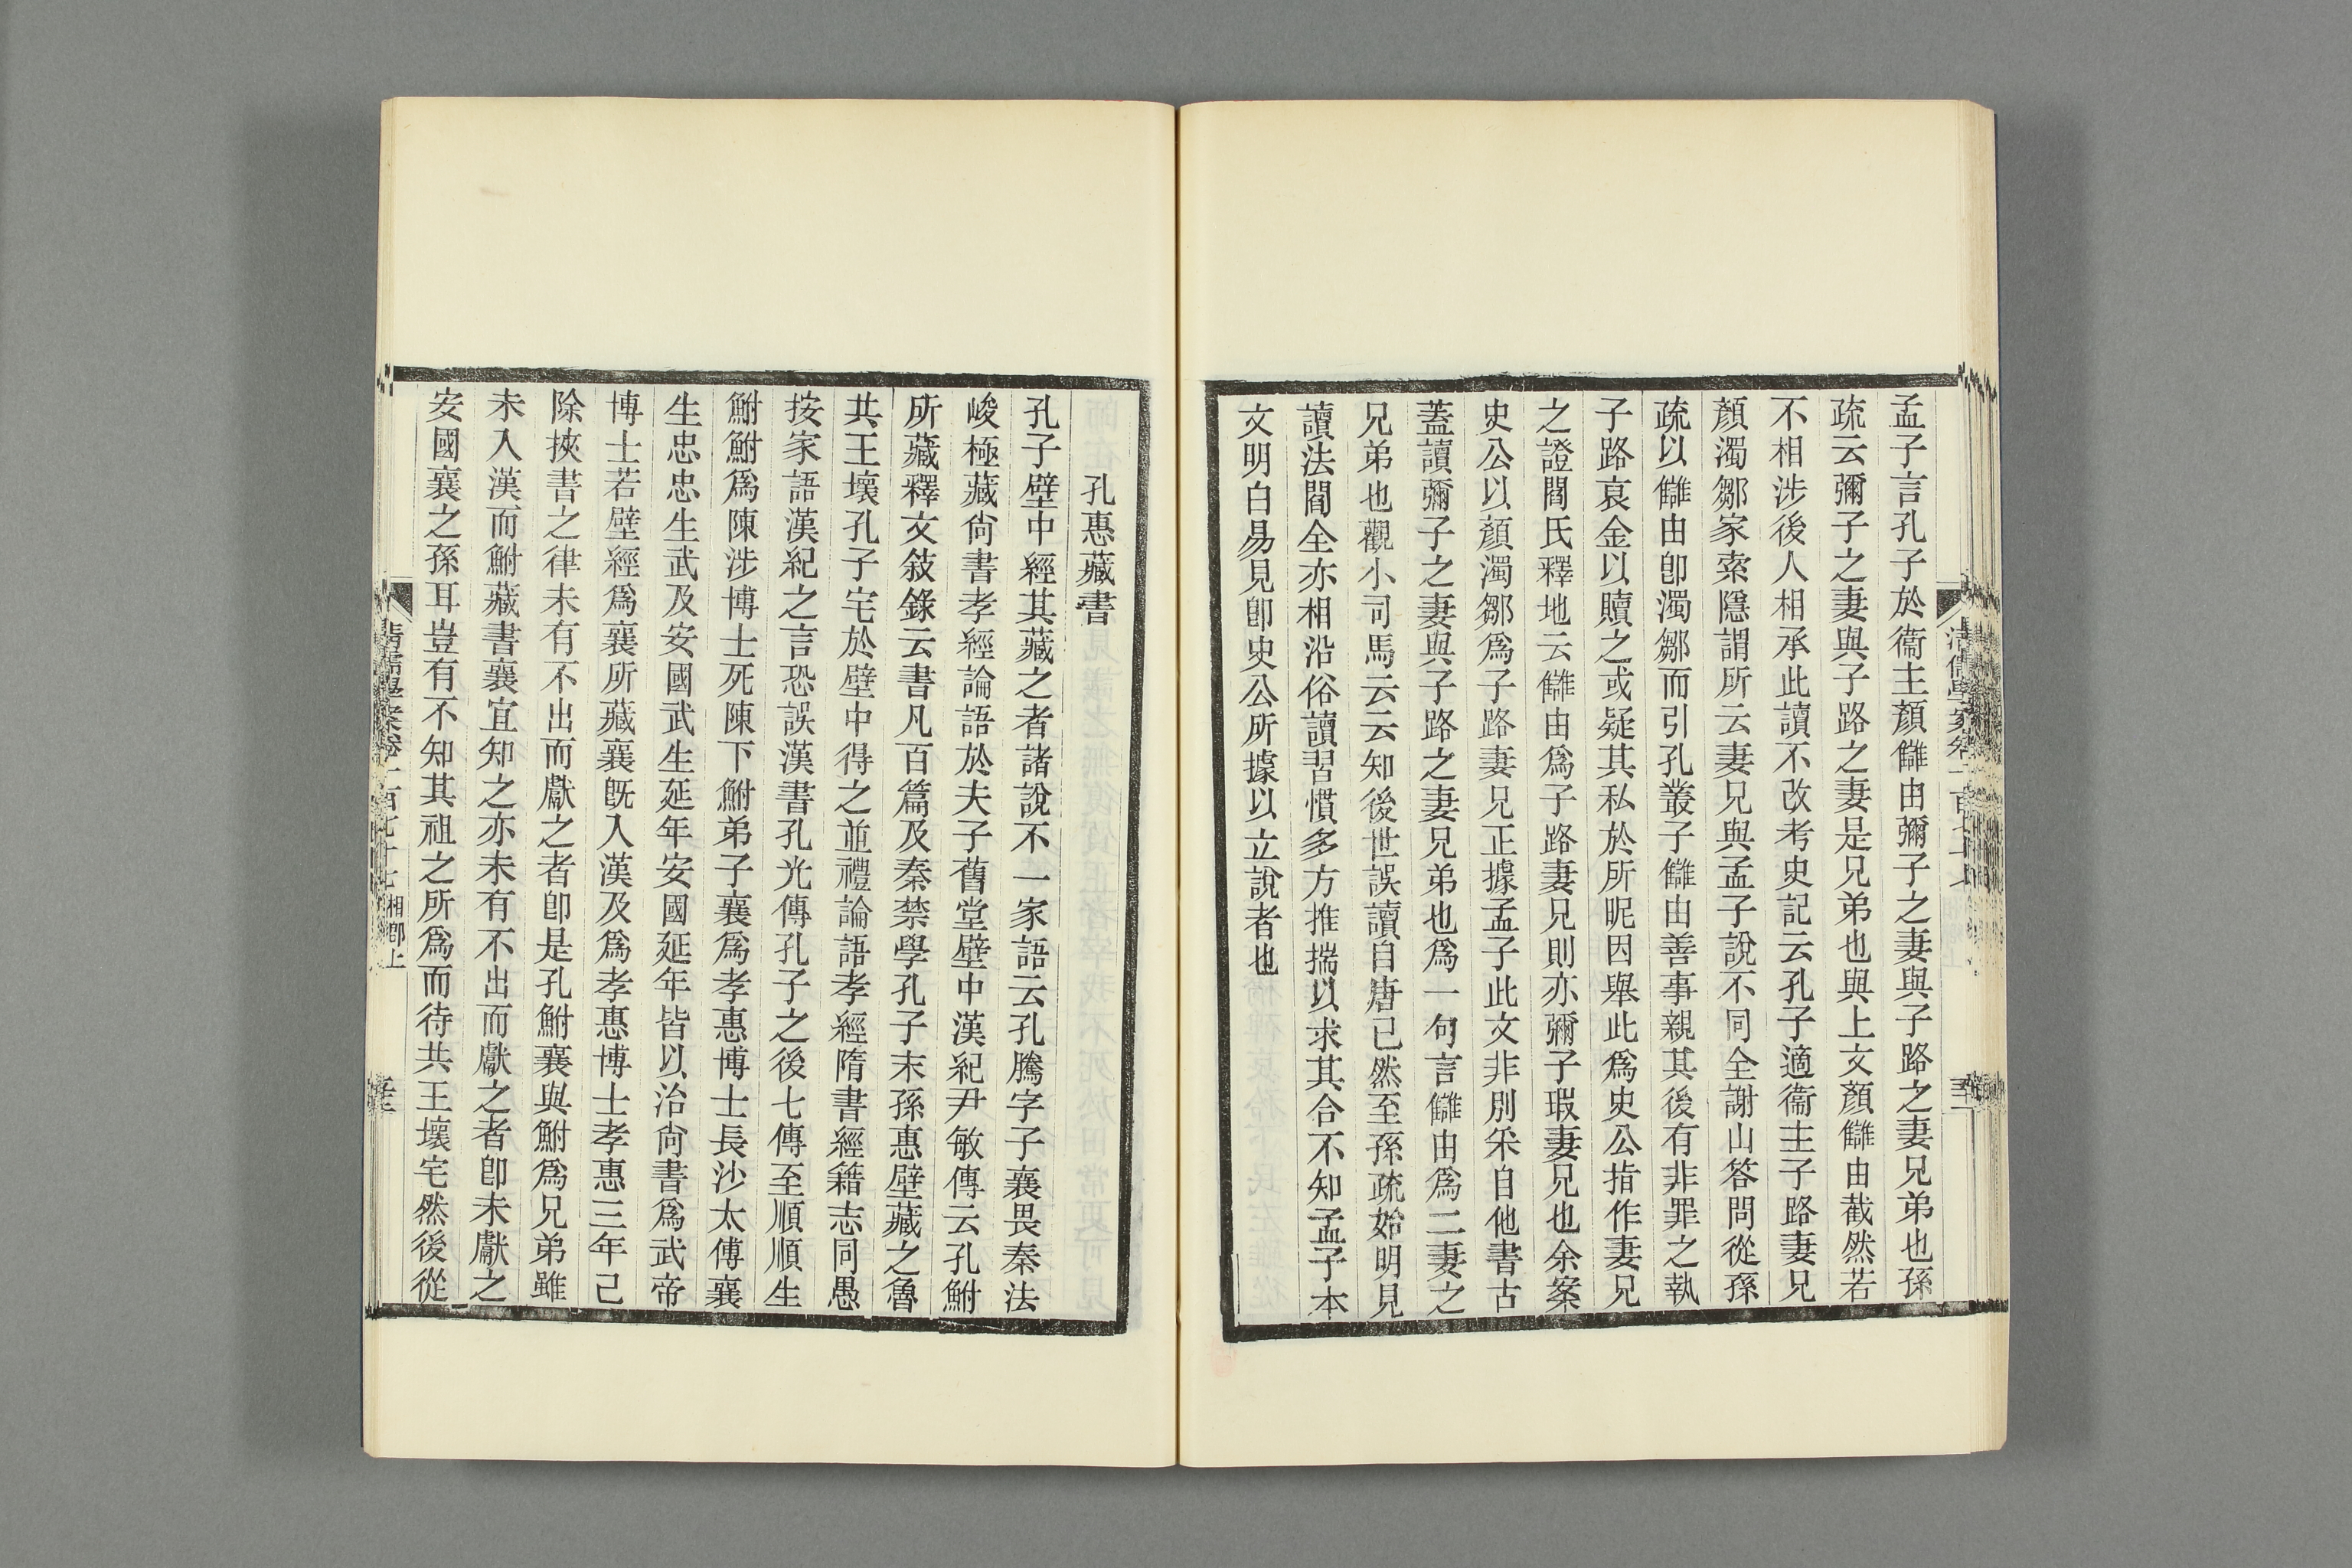 孟子言孔子於衞主顏讎由彌子之妻與子路之妻兄弟也孫
疏云彌子之妻與子路之妻是兄弟也與上文顏讎由截然若
不相涉後人相承此讀不改考史記云孔子適衞主子路妻兄
顏濁鄒家索隱謂所云妻兄與孟子說不同全謝山答問從孫
疏以讎由卽濁鄒而引孔叢子讎由善事親其後有非罪之執
子路哀金以贖之或疑其私於所昵因舉此爲史公指作妻兄
之證閻氏釋地云讎由爲子路妻兄則亦彌子瑕妻兄也余案
史公以顏濁鄒爲子路妻兄正據孟子此文非別采自他書古
蓋讀彌子之妻與子路之妻兄弟也爲一句言讎由爲二妻之
兄弟也觀小司馬云云知後世誤讀自唐已然至孫疏始明見
讀法閻全亦相沿俗讀習慣多方推揣以求其合不知孟子本
文明白易見卽史公所據以立說者也
孔惠藏書
孔子壁中經其藏之者諸說不一家語云孔騰字子襄畏秦法
峻極藏尙書孝經論語於夫子舊堂壁中漢紀尹敏傳云孔鮒
所藏釋文敍錄云書凡百篇及秦禁學孔子末孫惠壁藏之魯
共王壞孔子宅於壁中得之並禮論語孝經隋書經籍志同愚
按家語漢紀之言恐誤漢書孔光傳孔子之後七傳至順順生
鮒鮒爲陳涉博士死陳下鮒弟子襄爲孝惠博士長沙太傅襄
生忠忠生武及安國武生延年安國延年皆以治尙書爲武帝
博士若壁經爲襄所藏襄旣入漢及爲孝惠博士孝惠三年已
除挾書之律未有不出而獻之者卽是孔鮒襄與鮒爲兄弟雖
未入漢而鮒藏書襄宜知之亦未有不出而獻之者卽未獻之
安國襄之孫耳豈有不知其祖之所爲而待共王壞宅然後從
清儒學案卷一百七十七 湘鄕上